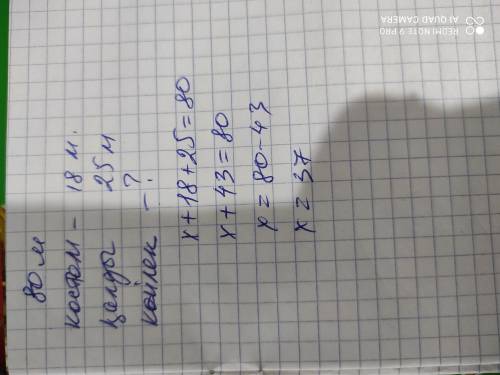 80 м
костюм - 18 м.
қалды 25 м
көйлек - ?
x + 18 + 25 = 80
x + 43 = 80
x = 80 - 43
x = 37
REDMI NOTE 9 PRO
AI QUAD CAMERA